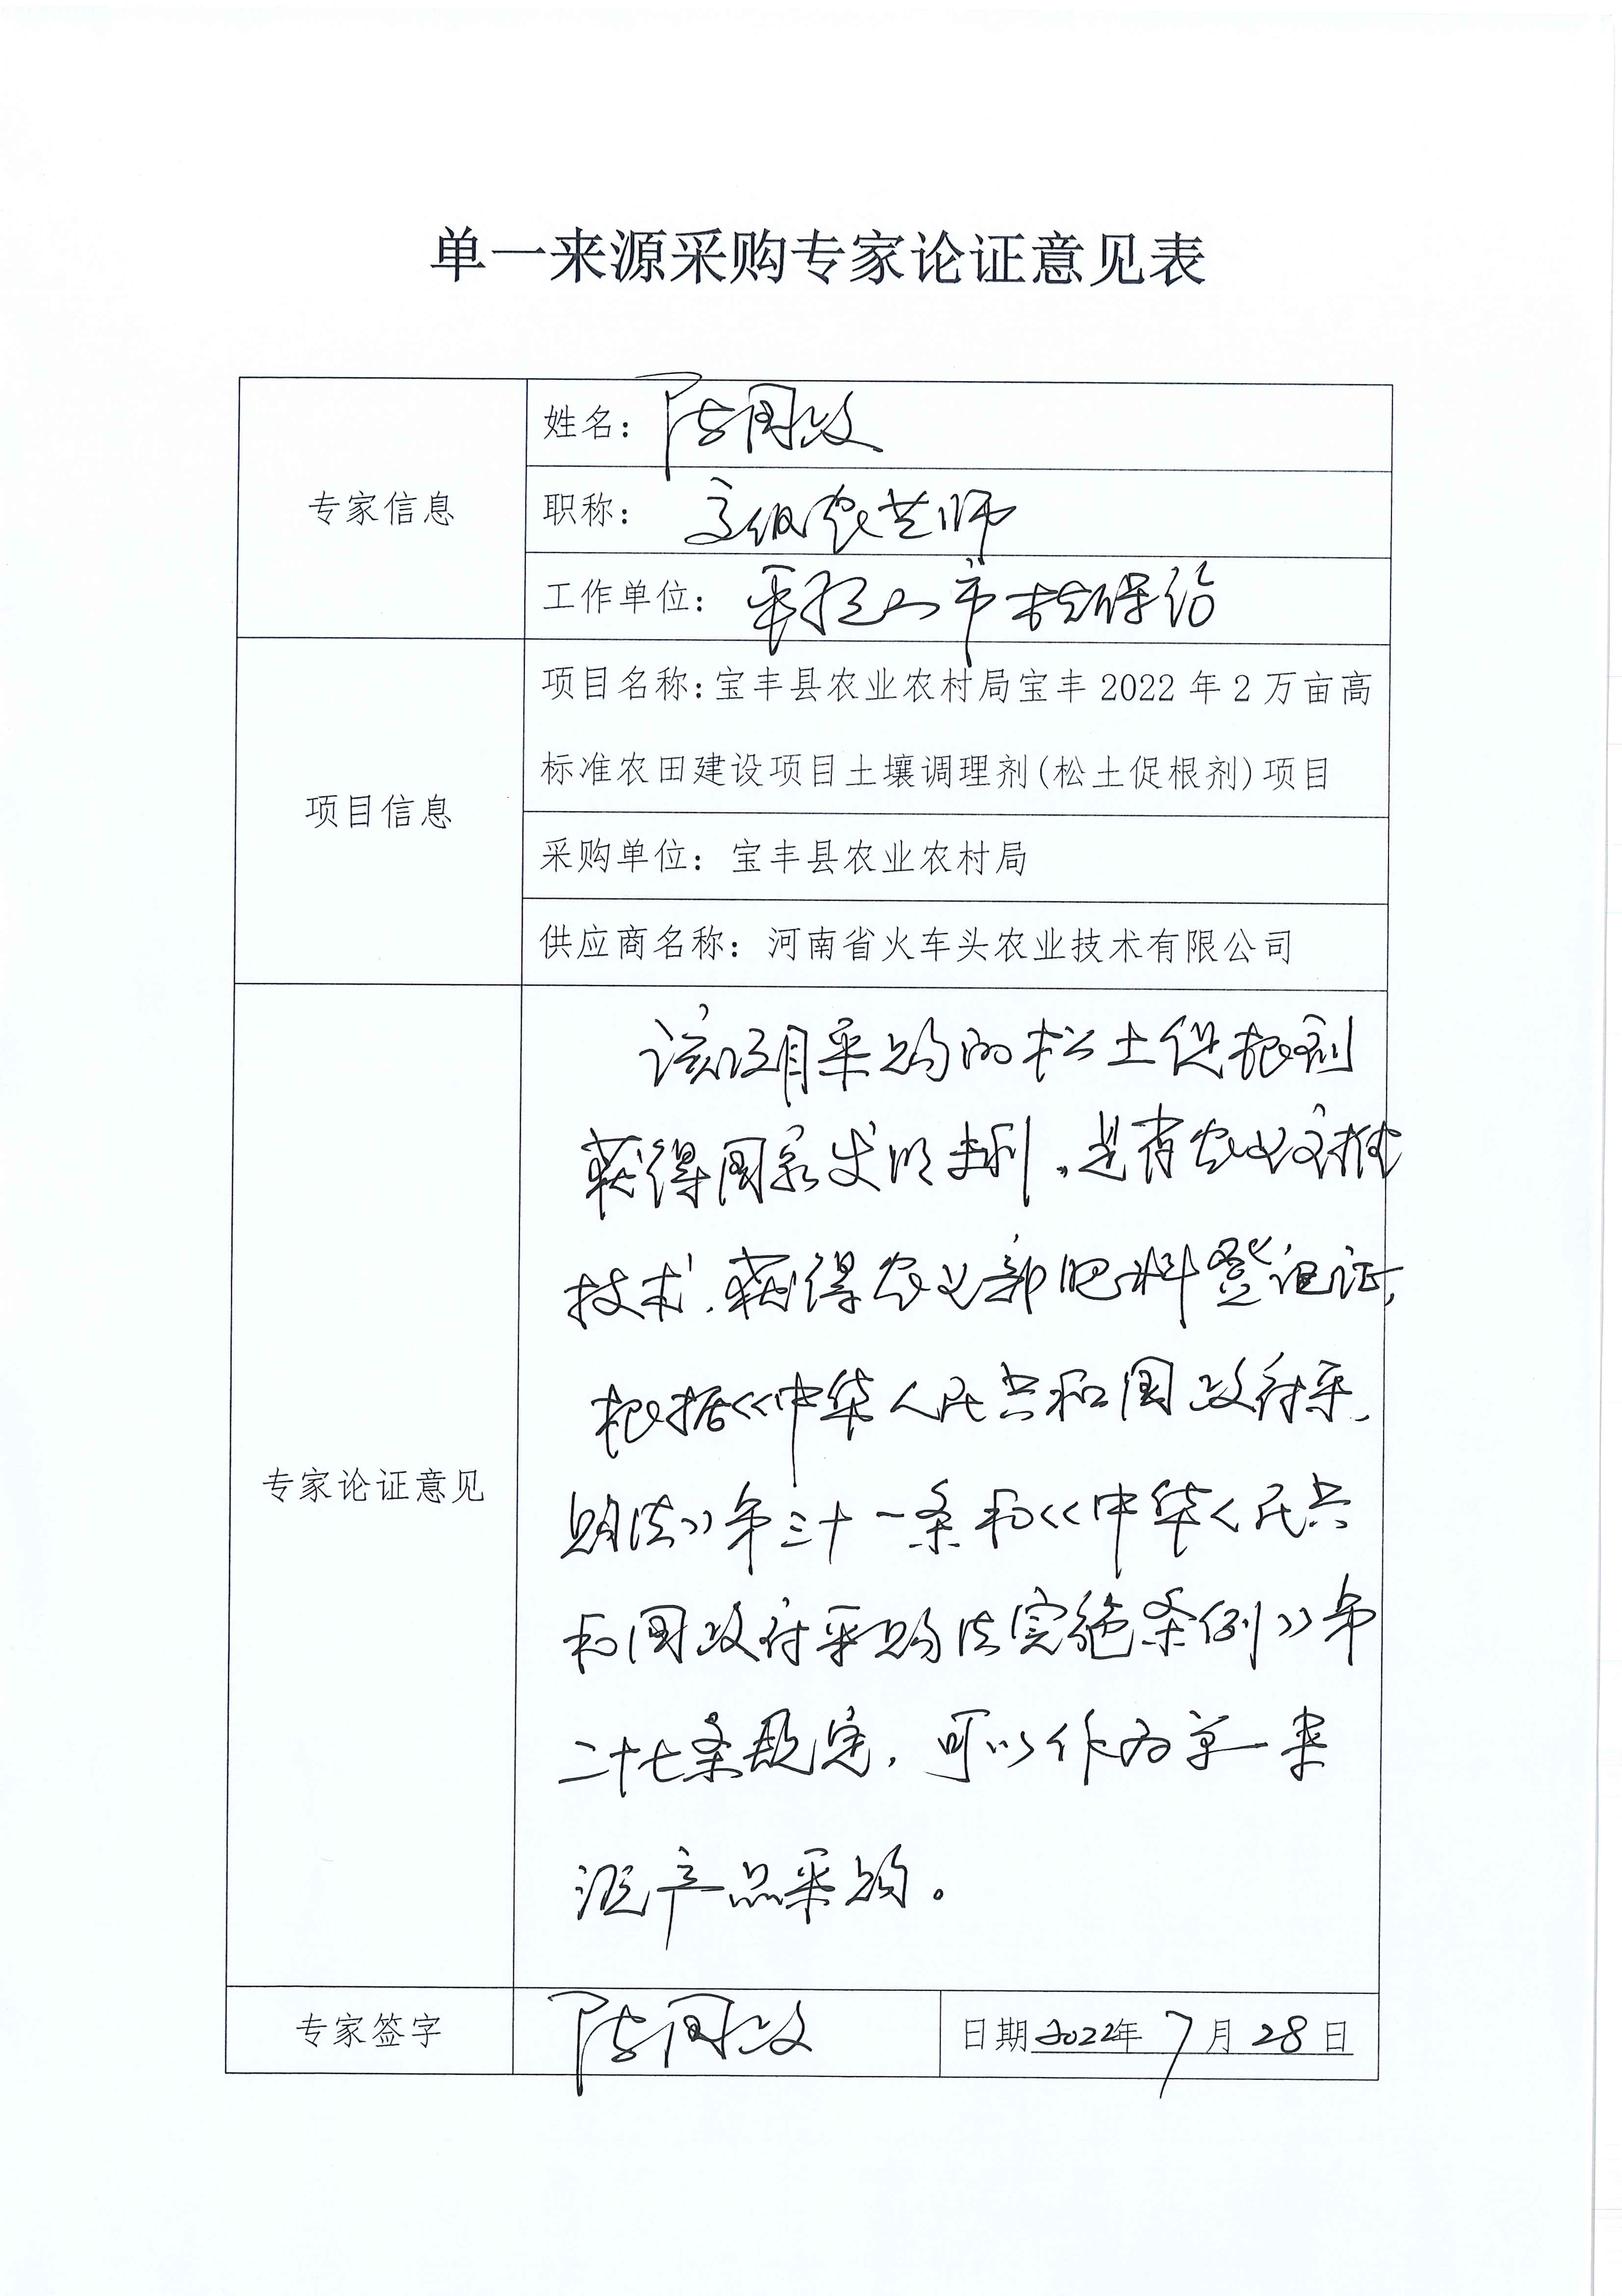 单一来源采购专家论证意见表
专家信息
姓名：陈国政
职称：高级农艺师
工作单位：平顶山市植保站
项目信息
项目名称:宝丰县农业农村局宝丰2022年2万亩高
标准农田建设项目土壤调理剂(松土促根剂)项目
采购单位：宝丰县农业农村局
供应商名称：河南省火车头农业技术有限公司
专家论证意见
该项目采购的松土促根剂
获得国家发明专利，是省农业主推
技术，获得农业部肥料登记证，
根据《中华人民共和国政府采
购法》第三十一条和《中华人民共
和国政府采购法实施条例》第
二十七条规定，可以作为单一来
源产品采购。
专家签字
陈国政
日期2022年7月28日